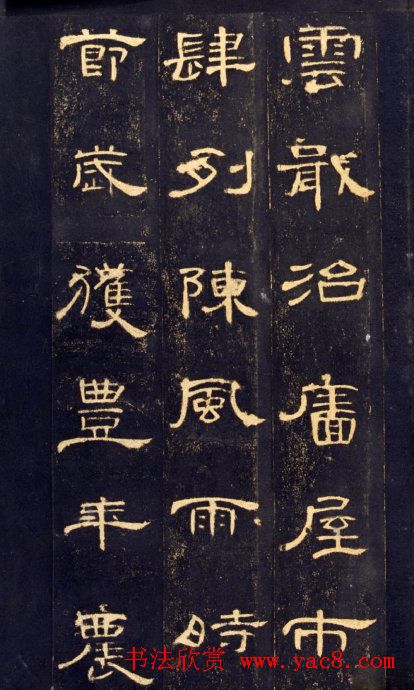 雲戢治廧屋市
肆列陳風雨時
節歲獲豐年農
书法欣赏 www.yac8.com